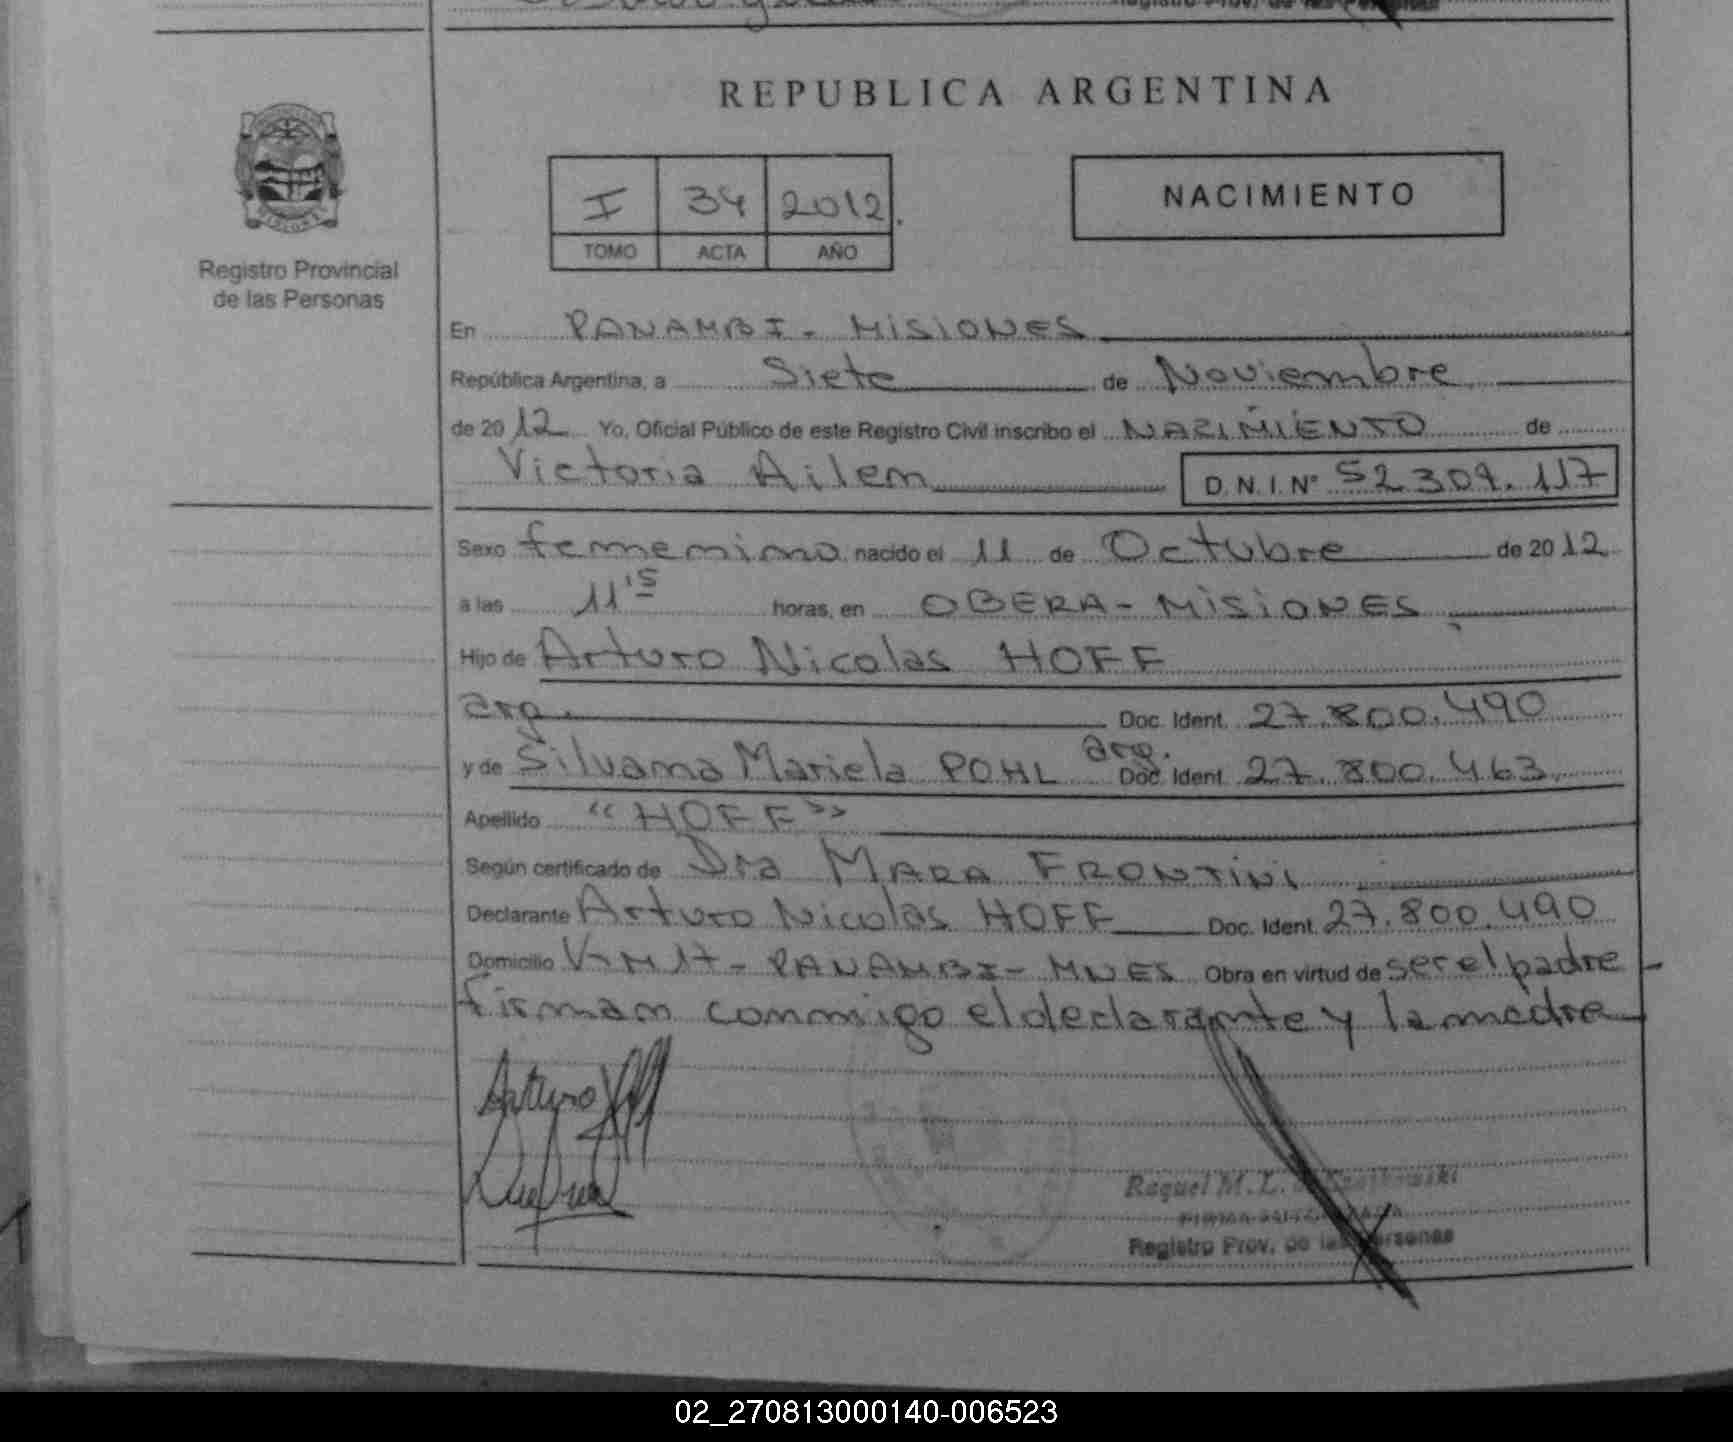 REPUBLICA ARGENTINA
I 34 2012.
TOMO ACTA AÑO
NACIMIENTO
Registro Provincial
de las Personas
En PANAMBI - MISIONES
República Argentina, a Siete de Noviembre
de 2012 Yo, Oficial Público de este Registro Civil inscribo el NACIMIENTO de
Victoria Ailem D.N.I. N° 52.309.117
Sexo femenino nacido el 11 de Octubre de 2012
a las 11'5 horas, en OBERA - MISIONES
Hijo de Arturo Nicolas HOFF
arg. Doc. Ident. 27.800.490
y de Silvana Mariela POHL arg. Doc. Ident. 27.800.463
Apellido "HOFF"
Según certificado de Dra MARA FRONTINI
Declarante Arturo Nicolas HOFF Doc. Ident. 27.800.490
Domicilio KM 17 - PANAMBI - MNES Obra en virtud de ser el padre
firman conmigo el declarante y la madre
Arturo Hoff
Raquel M. L.
FIRMA AUTORIZADA
Registro Prov. de las Personas
02_270813000140-006523